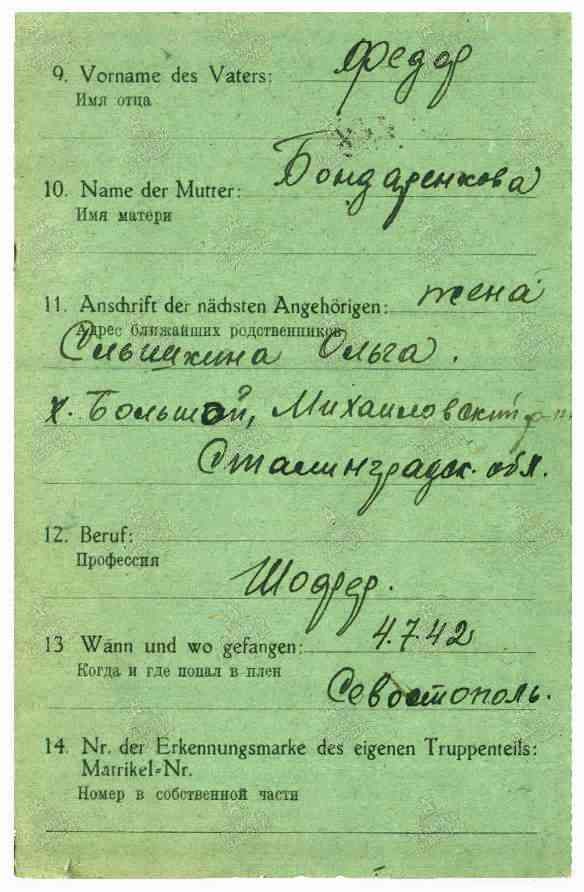 9. Vorname des Vaters: Федор
Имя отца
10. Name der Mutter: Бондаренкова
Имя матери
11. Anschrift der nächsten Angehörigen: жена
Адрес ближайших родственников
Ольга.
х. Большой, Михаиловский р-н
Сталинградск. обл.
12. Beruf:
Профессия
Шофер.
13 Wann und wo gefangen: 4.7.42
Когда и где попал в плен
Севостополь.
14. Nr. der Erkennungsmarke des eigenen Truppenteils:
Matrikel-Nr.
Номер в собственной части